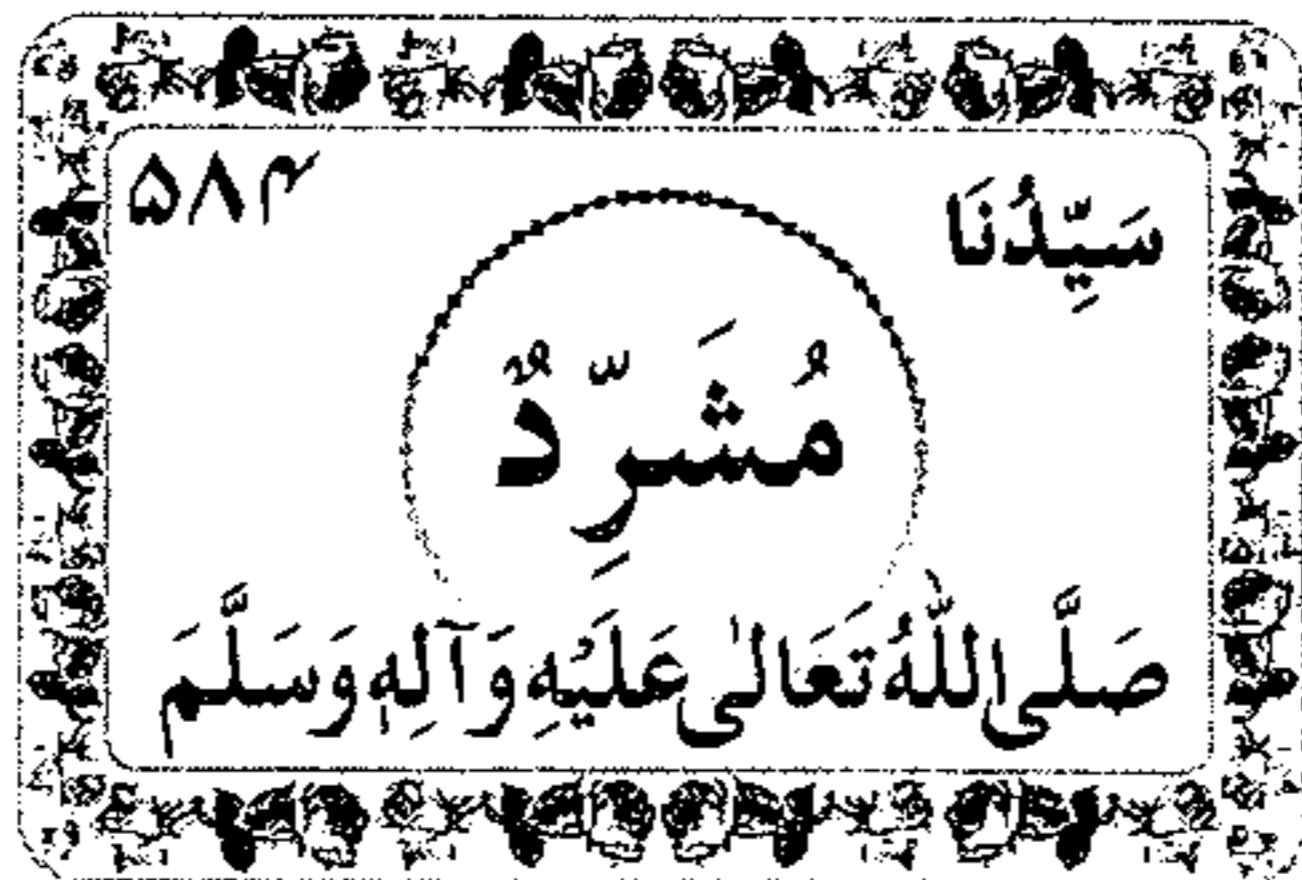 سَيِّدُنَا
۵۸۴
مُشَرِّدٌ
صَلَّى اللّٰهُ تَعَالٰى عَلَيْهِ وَآلِهٖ وَسَلَّمَ